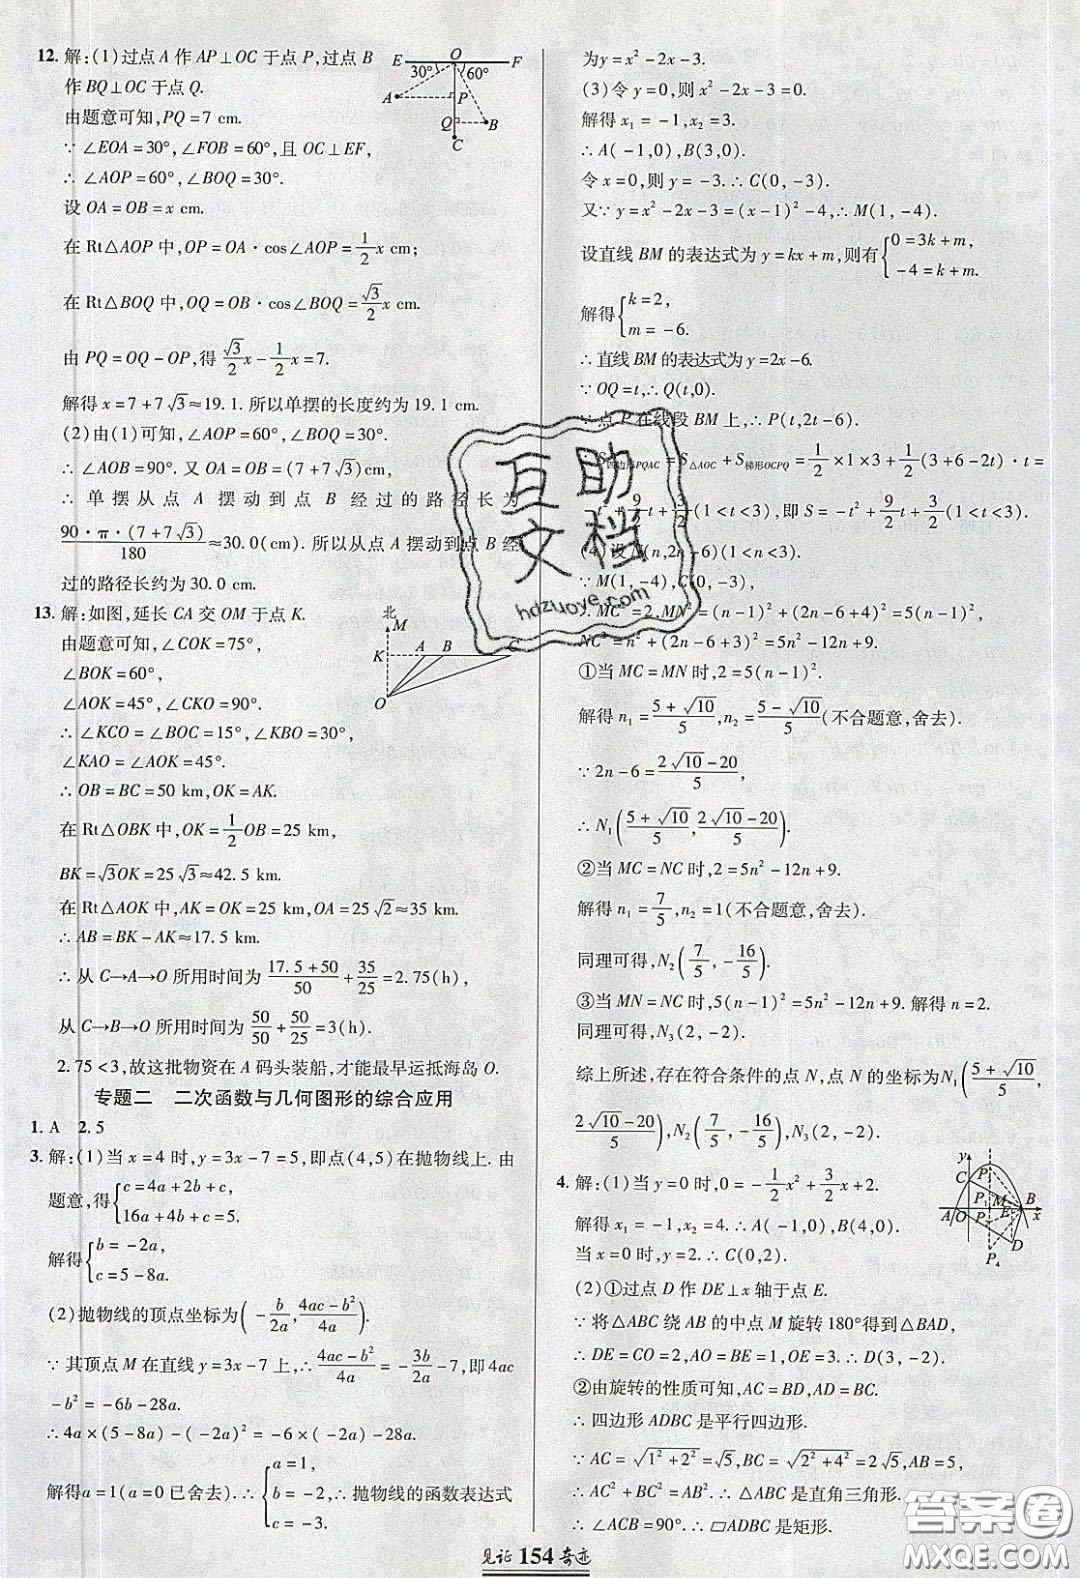 12. 解:(1)过点 A 作 AP⊥OC 于点 P,过点 B
作 BQ⊥OC 于点 Q.
由题意可知,PQ=7 cm.
∵ ∠EOA=30°,∠FOB=60°,且 OC⊥EF,
∴ ∠AOP=60°,∠BOQ=30°.
设 OA=OB=x cm.
在 Rt△AOP 中,OP=OA·cos∠AOP=1/2 x cm;
在 Rt△BOQ 中,OQ=OB·cos∠BOQ=√3/2 x cm.
由 PQ=OQ-OP,得 √3/2 x-1/2 x=7.
解得 x=7+7√3≈19.1. 所以单摆的长度约为 19.1 cm.
(2)由(1)可知,∠AOP=60°,∠BOQ=30°.
∴ ∠AOB=90°. 又 OA=OB=(7+7√3)cm.
∴ 单摆从点 A 摆动到点 B 经过的路径长为
90·π·(7+7√3)/180≈30.0(cm). 所以从点 A 摆动到点 B 经
过的路径长约为 30.0 cm.
E O F
30° 60°
A P
Q B
C
13. 解:如图,延长 CA 交 OM 于点 K.
由题意可知,∠COK=75°,
∠BOK=60°,
∠AOK=45°,∠CKO=90°.
∴ ∠KCO=∠BOC=15°,∠KBO=30°,
∠KAO=∠AOK=45°.
∴ OB=BC=50 km,OK=AK.
在 Rt△OBK 中,OK=1/2 OB=25 km,
BK=√3OK=25√3≈42.5 km.
在 Rt△AOK 中,AK=OK=25 km,OA=25√2≈35 km.
∴ AB=BK-AK≈17.5 km.
∴ 从 C→A→O 所用时间为 (17.5+50)/50+35/25=2.75(h),
从 C→B→O 所用时间为 50/50+50/25=3(h).
2.75<3,故这批物资在 A 码头装船,才能最早运抵海岛 O.
北
M
K A B C
O
专题二 二次函数与几何图形的综合应用
1. A 2. 5
3. 解:(1)当 x=4 时,y=3x-7=5,即点(4,5)在抛物线上. 由
题意,得{c=4a+2b+c,
16a+4b+c=5.
解得{b=-2a,
c=5-8a.
(2)抛物线的顶点坐标为(-b/2a,(4ac-b²)/4a).
∵ 其顶点 M 在直线 y=3x-7 上,∴ (4ac-b²)/4a=-3b/2a-7,即 4ac
-b²=-6b-28a.
∴ 4a×(5-8a)-(-2a)²=-6×(-2a)-28a.
解得 a=1(a=0 已舍去). ∴ {a=1,
b=-2,
c=-3.
∴ 抛物线的函数表达式
为 y=x²-2x-3.
(3)令 y=0,则 x²-2x-3=0.
解得 x₁=-1,x₂=3.
∴ A(-1,0),B(3,0).
令 x=0,则 y=-3. ∴ C(0,-3).
又∵ y=x²-2x-3=(x-1)²-4,∴ M(1,-4).
设直线 BM 的表达式为 y=kx+m,则有{0=3k+m,
-4=k+m.
解得{k=2,
m=-6.
∴ 直线 BM 的表达式为 y=2x-6.
∵ OQ=t,∴ Q(t,0).
∵ 点 P 在线段 BM 上,∴ P(t,2t-6).
PQAC=S△AOC+S梯形OCPQ=1/2×1×3+1/2(3+6-2t)·t=
t+3/2(1<t<3),即 S=-t²+9/2 t+3/2(1<t<3).
(4)设 (n,2n-6)(1<n<3).
∵ M(1,-4),C(0,-3),
MC²=2,MN²=(n-1)²+(2n-6+4)²=5(n-1)²,
NC²=n²+(2n-6+3)²=5n²-12n+9.
①当 MC=MN 时,2=5(n-1)².
解得 n₁=(5+√10)/5,n₂=(5-√10)/5(不合题意,舍去).
∵ 2n-6=(2√10-20)/5,
∴ N₁((5+√10)/5,(2√10-20)/5).
②当 MC=NC 时,2=5n²-12n+9.
解得 n₁=7/5,n₂=1(不合题意,舍去).
同理可得,N₂(7/5,-16/5).
③当 MN=NC 时,5(n-1)²=5n²-12n+9. 解得 n=2.
同理可得,N₃(2,-2).
综上所述,存在符合条件的点 N,N₁((5+√10)/5,
(2√10-20)/5),N₂(7/5,-16/5),N₃(2,-2).
4. 解:(1)当 y=0 时,0=-1/2 x²+3/2 x+2.
解得 x₁=-1,x₂=4. ∴ A(-1,0),B(4,0).
当 x=0 时,y=2. ∴ C(0,2).
(2)①过点 D 作 DE⊥x 轴于点 E.
∵ 将△ABC 绕 AB 的中点 M 旋转 180°得到△BAD,
∴ DE=CO=2,AO=BE=1,OE=3. ∴ D(3,-2).
②由旋转的性质可知,AC=BD,AD=BC.
∴ 四边形 ADBC 是平行四边形.
∵ AC=√(1²+2²)=√5,BC=√(2²+4²)=2√5,AB=5.
∴ AC²+BC²=AB². ∴ △ABC 是直角三角形.
∴ ∠ACB=90°. ∴ ▱ADBC 是矩形.
互助
文档
hdzuoye.com
见证 154 奇迹
答案圈
MXQE.COM